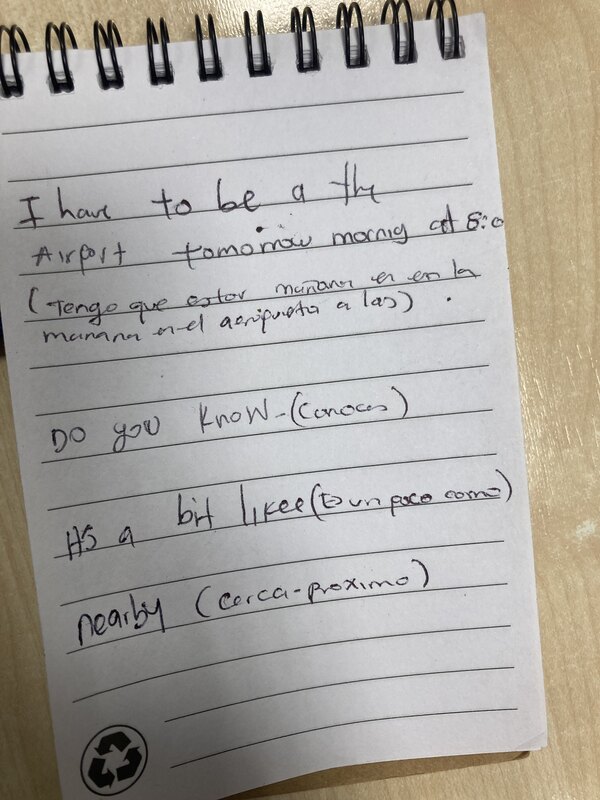 I have to be a the
Airport tomorrow mornig at 8:0
(Tengo que estar mañana en en la
manana en el aeropuerto a las).
DO you KNOW-(Conoces)
It's a bit likee (Es un poco como)
nearby (cerca-proximo)